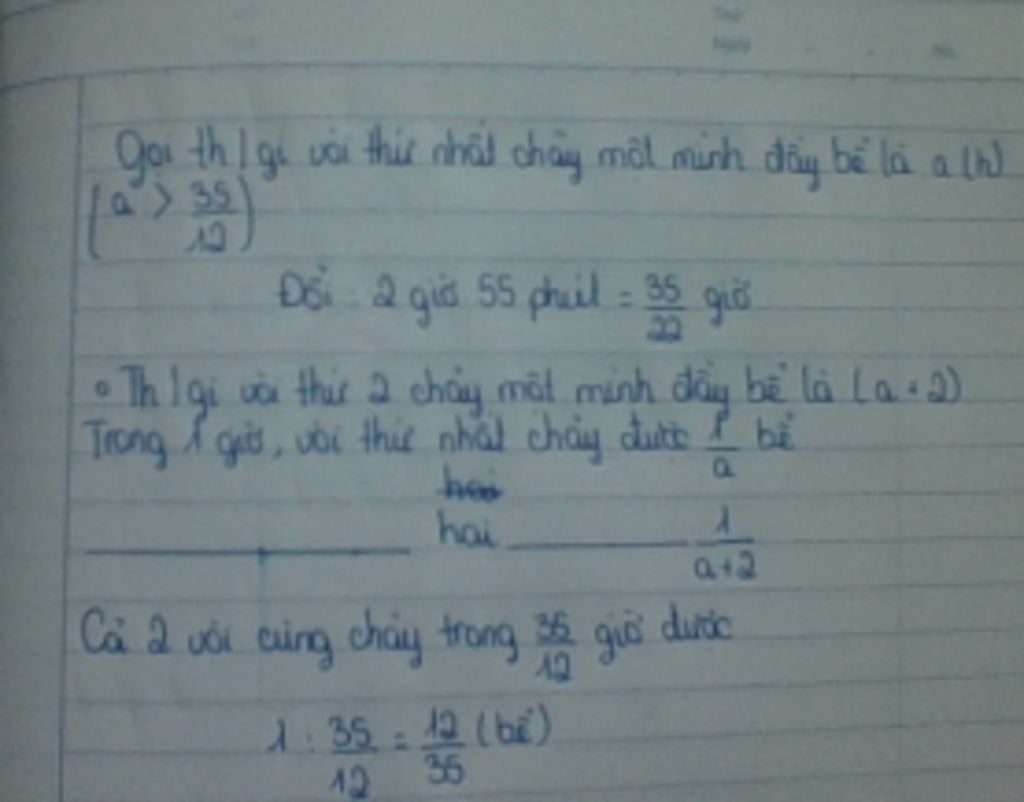 Thứ
Ngày No.
Gọi th/gi vòi thứ nhất chảy một mình đầy bể là a (h)
(a > 35/12)
Đổi : 2 giờ 55 phút = 35/22 giờ
• Th/gi vòi thứ 2 chảy một mình đầy bể là (a+2)
Trong 1 giờ, vòi thứ nhất chảy được 1/a bể
hai
hai 1/a+2
Cả 2 vòi cùng chảy trong 35/12 giờ được
1 : 35/12 = 12/35 (bể)